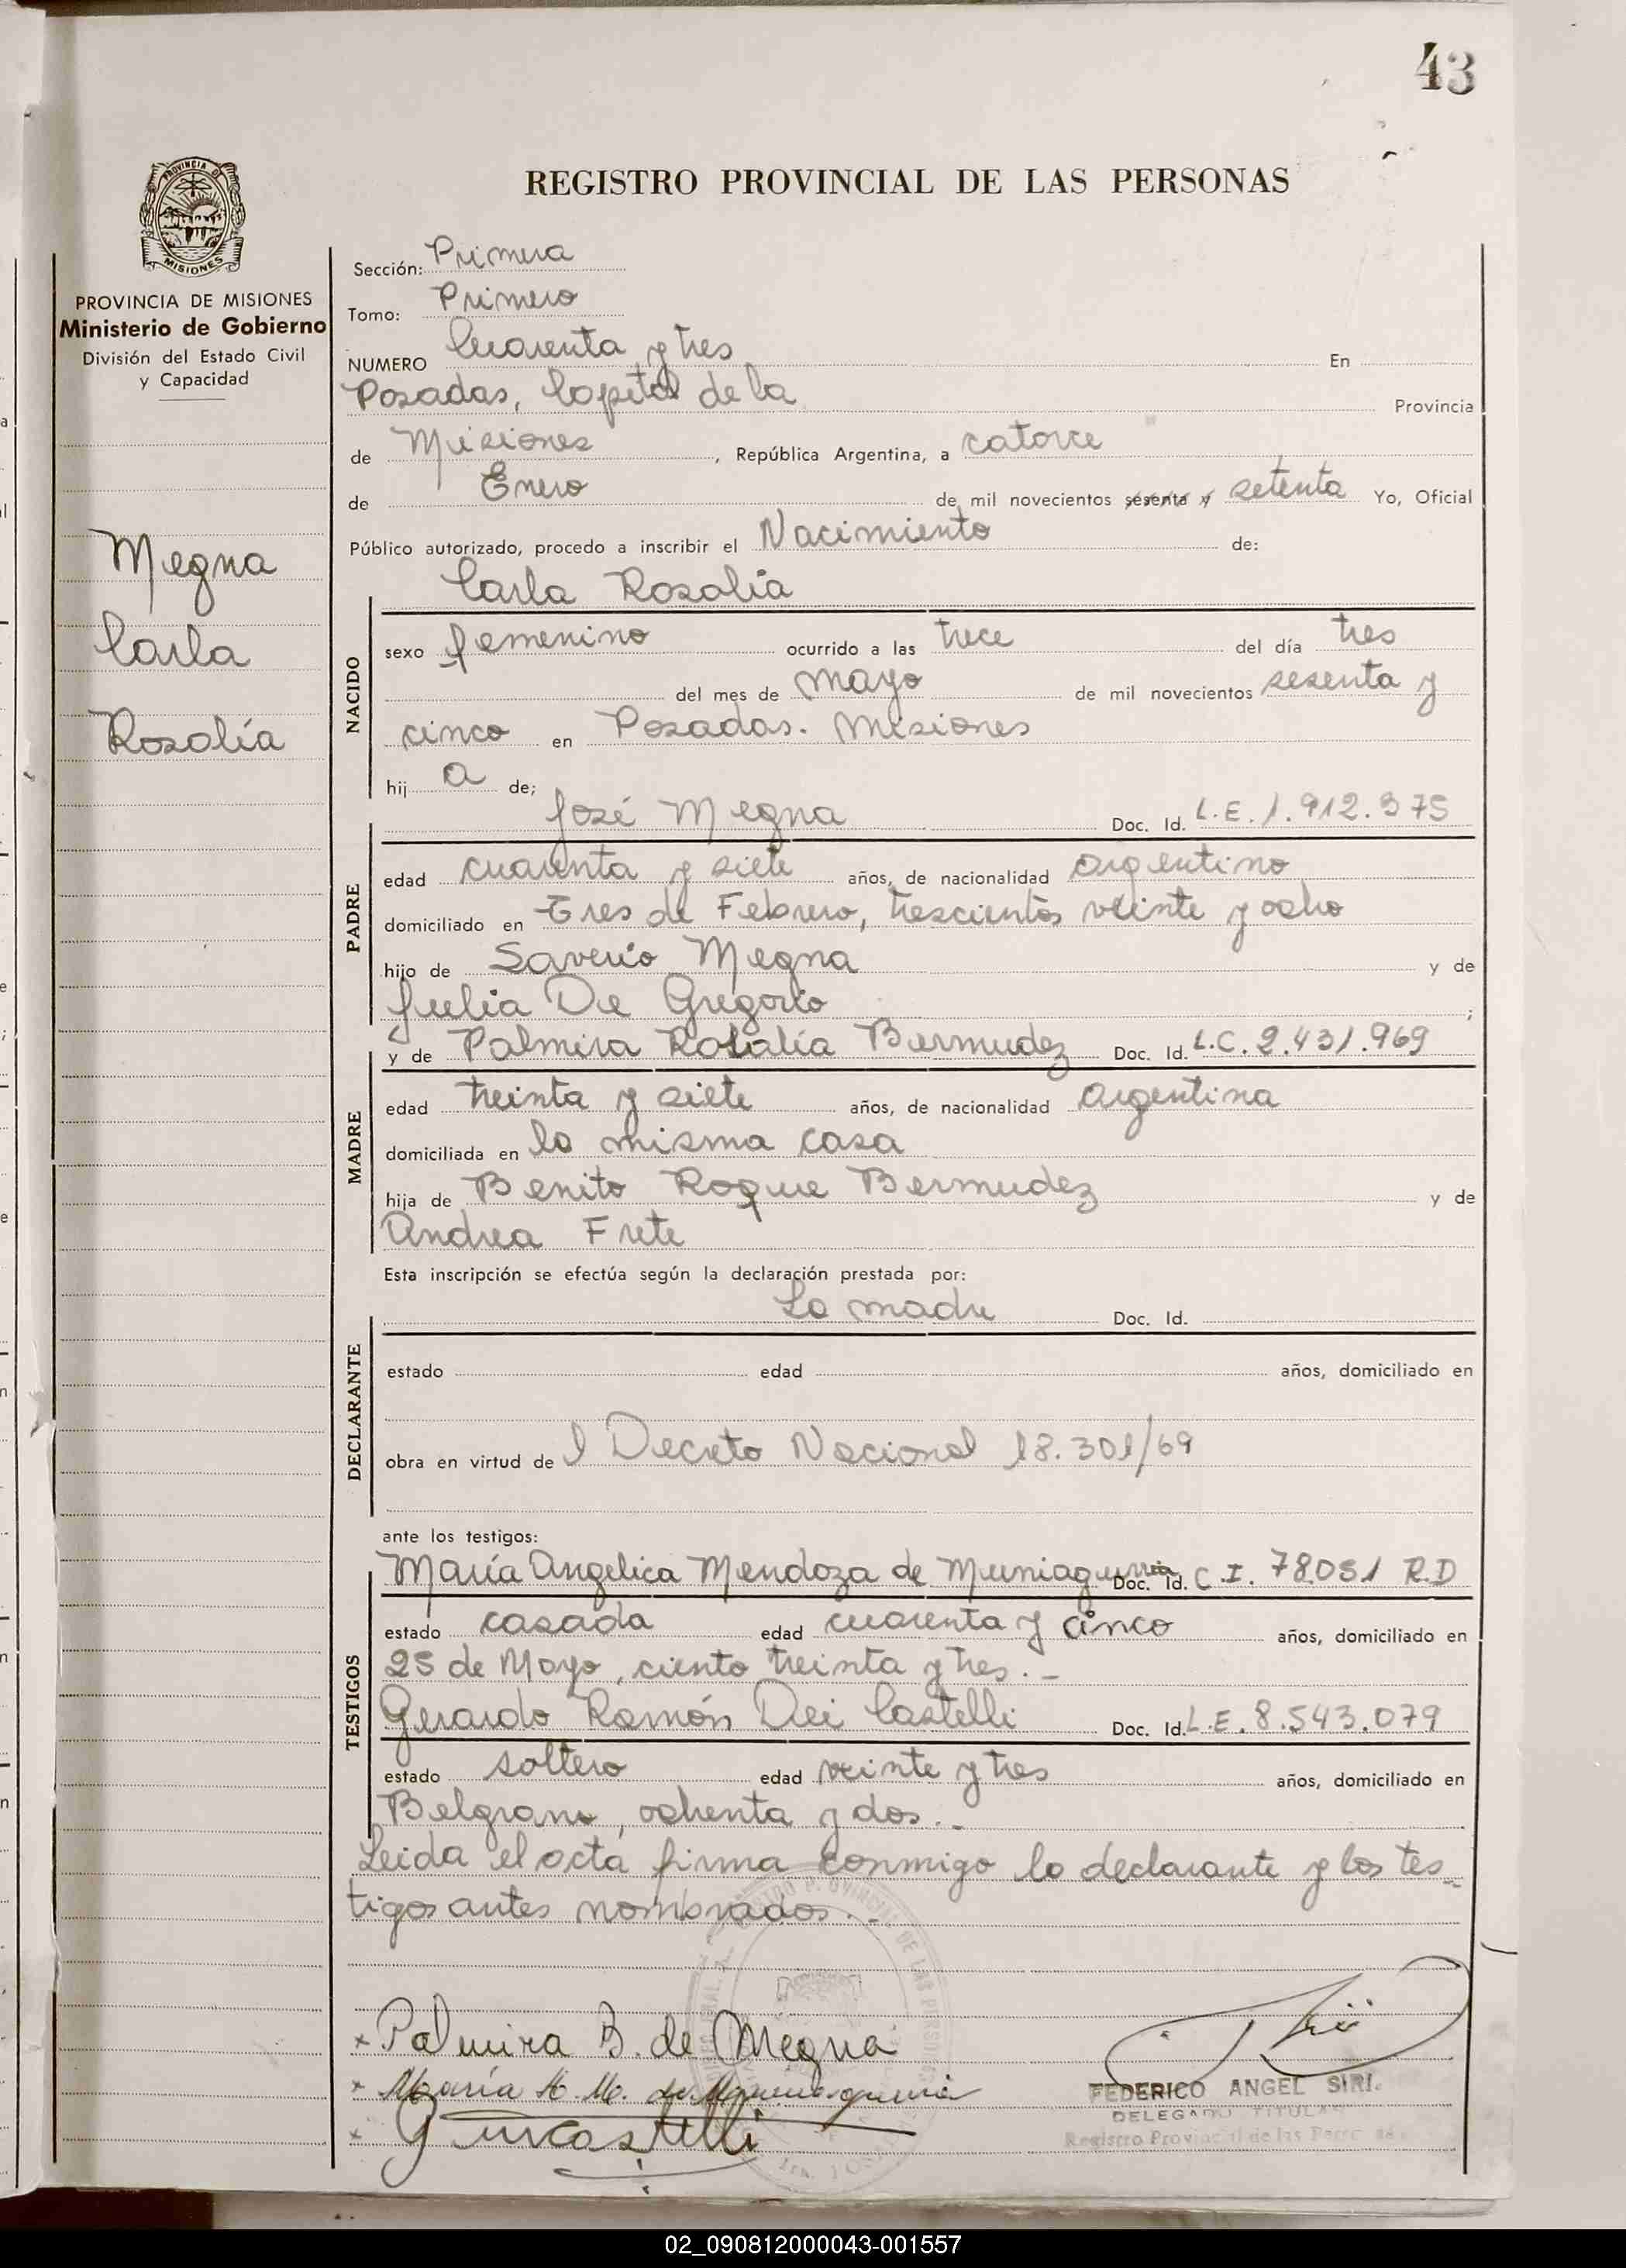 43
PROVINCIA DE
MISIONES
REGISTRO PROVINCIAL DE LAS PERSONAS
PROVINCIA DE MISIONES
Ministerio de Gobierno
División del Estado Civil
y Capacidad
Megna
Carla
Rosalía
Sección: Primera
Tomo: Primero
NUMERO Cuarenta y tres En
Posadas, Capital de la Provincia
de Misiones, República Argentina, a catorce
de Enero de mil novecientos sesenta y setenta Yo, Oficial
Público autorizado, procedo a inscribir el Nacimiento de:
Carla Rosalia
NACIDO
sexo femenino ocurrido a las trece del día tres
del mes de mayo de mil novecientos sesenta y
cinco en Posadas. Misiones
hij a de;
José Megna Doc. Id. L.E. 1.912.375
PADRE
edad cuarenta y siete años, de nacionalidad argentino
domiciliado en Tres de Febrero, trescientos veinte y ocho
hijo de Saverio Megna y de
Julia De Gregorio;
y de Palmira Rosalía Bermudez Doc. Id. L.C. 2.431.969
MADRE
edad treinta y siete años, de nacionalidad argentina
domiciliada en la misma casa
hija de Benito Roque Bermudez y de
Andrea Frete
Esta inscripción se efectúa según la declaración prestada por:
La madre Doc. Id.
DECLARANTE
estado edad años, domiciliado en
obra en virtud de l Decreto Nacional 18.301/69
ante los testigos:
María Angelica Mendoza de Muniagurria Doc. Id. C.I. 78.051 R.D
TESTIGOS
estado casada edad cuarenta y cinco años, domiciliado en
25 de Mayo, ciento treinta y tres.-
Gerardo Ramón Dei Castelli Doc. Id. L.E. 8.543.079
estado soltero edad veinte y tres años, domiciliado en
Belgrano, ochenta y dos..
Leida el acta firma conmigo la declarante y los tes
tigos antes nombrados..
Palmira B. de Megna
María A. M. de Muniagurria
FEDERICO ANGEL SIRI
DELEGADO TITULAR
Registro Provincial de las Personas
02_090812000043-001557